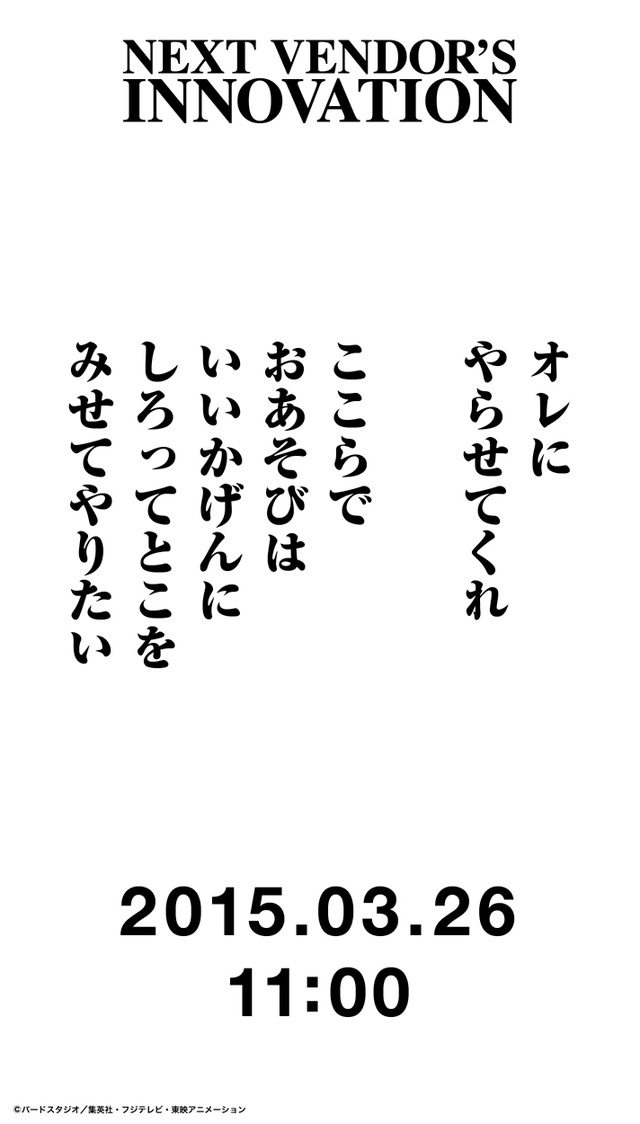 NEXT VENDOR'S
INNOVATION
オレに
やらせてくれ
ここらで
おあそびは
いいかげんに
しろってとこを
みせてやりたい
2015.03.26
11:00
©バードスタジオ／集英社・フジテレビ・東映アニメーション